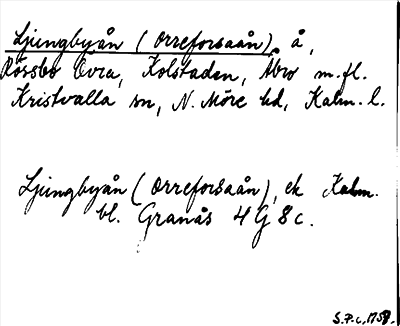 Ljungbyån (Orreforsaån), å,
Rössbo Övra, Kolstaden, Åbro m.fl.
Kristvalla sn, N. Möre hd, Kalm. l.
Ljungbyån (Orreforsaån), ek Kalm.
bl. Granås 4G 8c.
S.P.c, 1758.